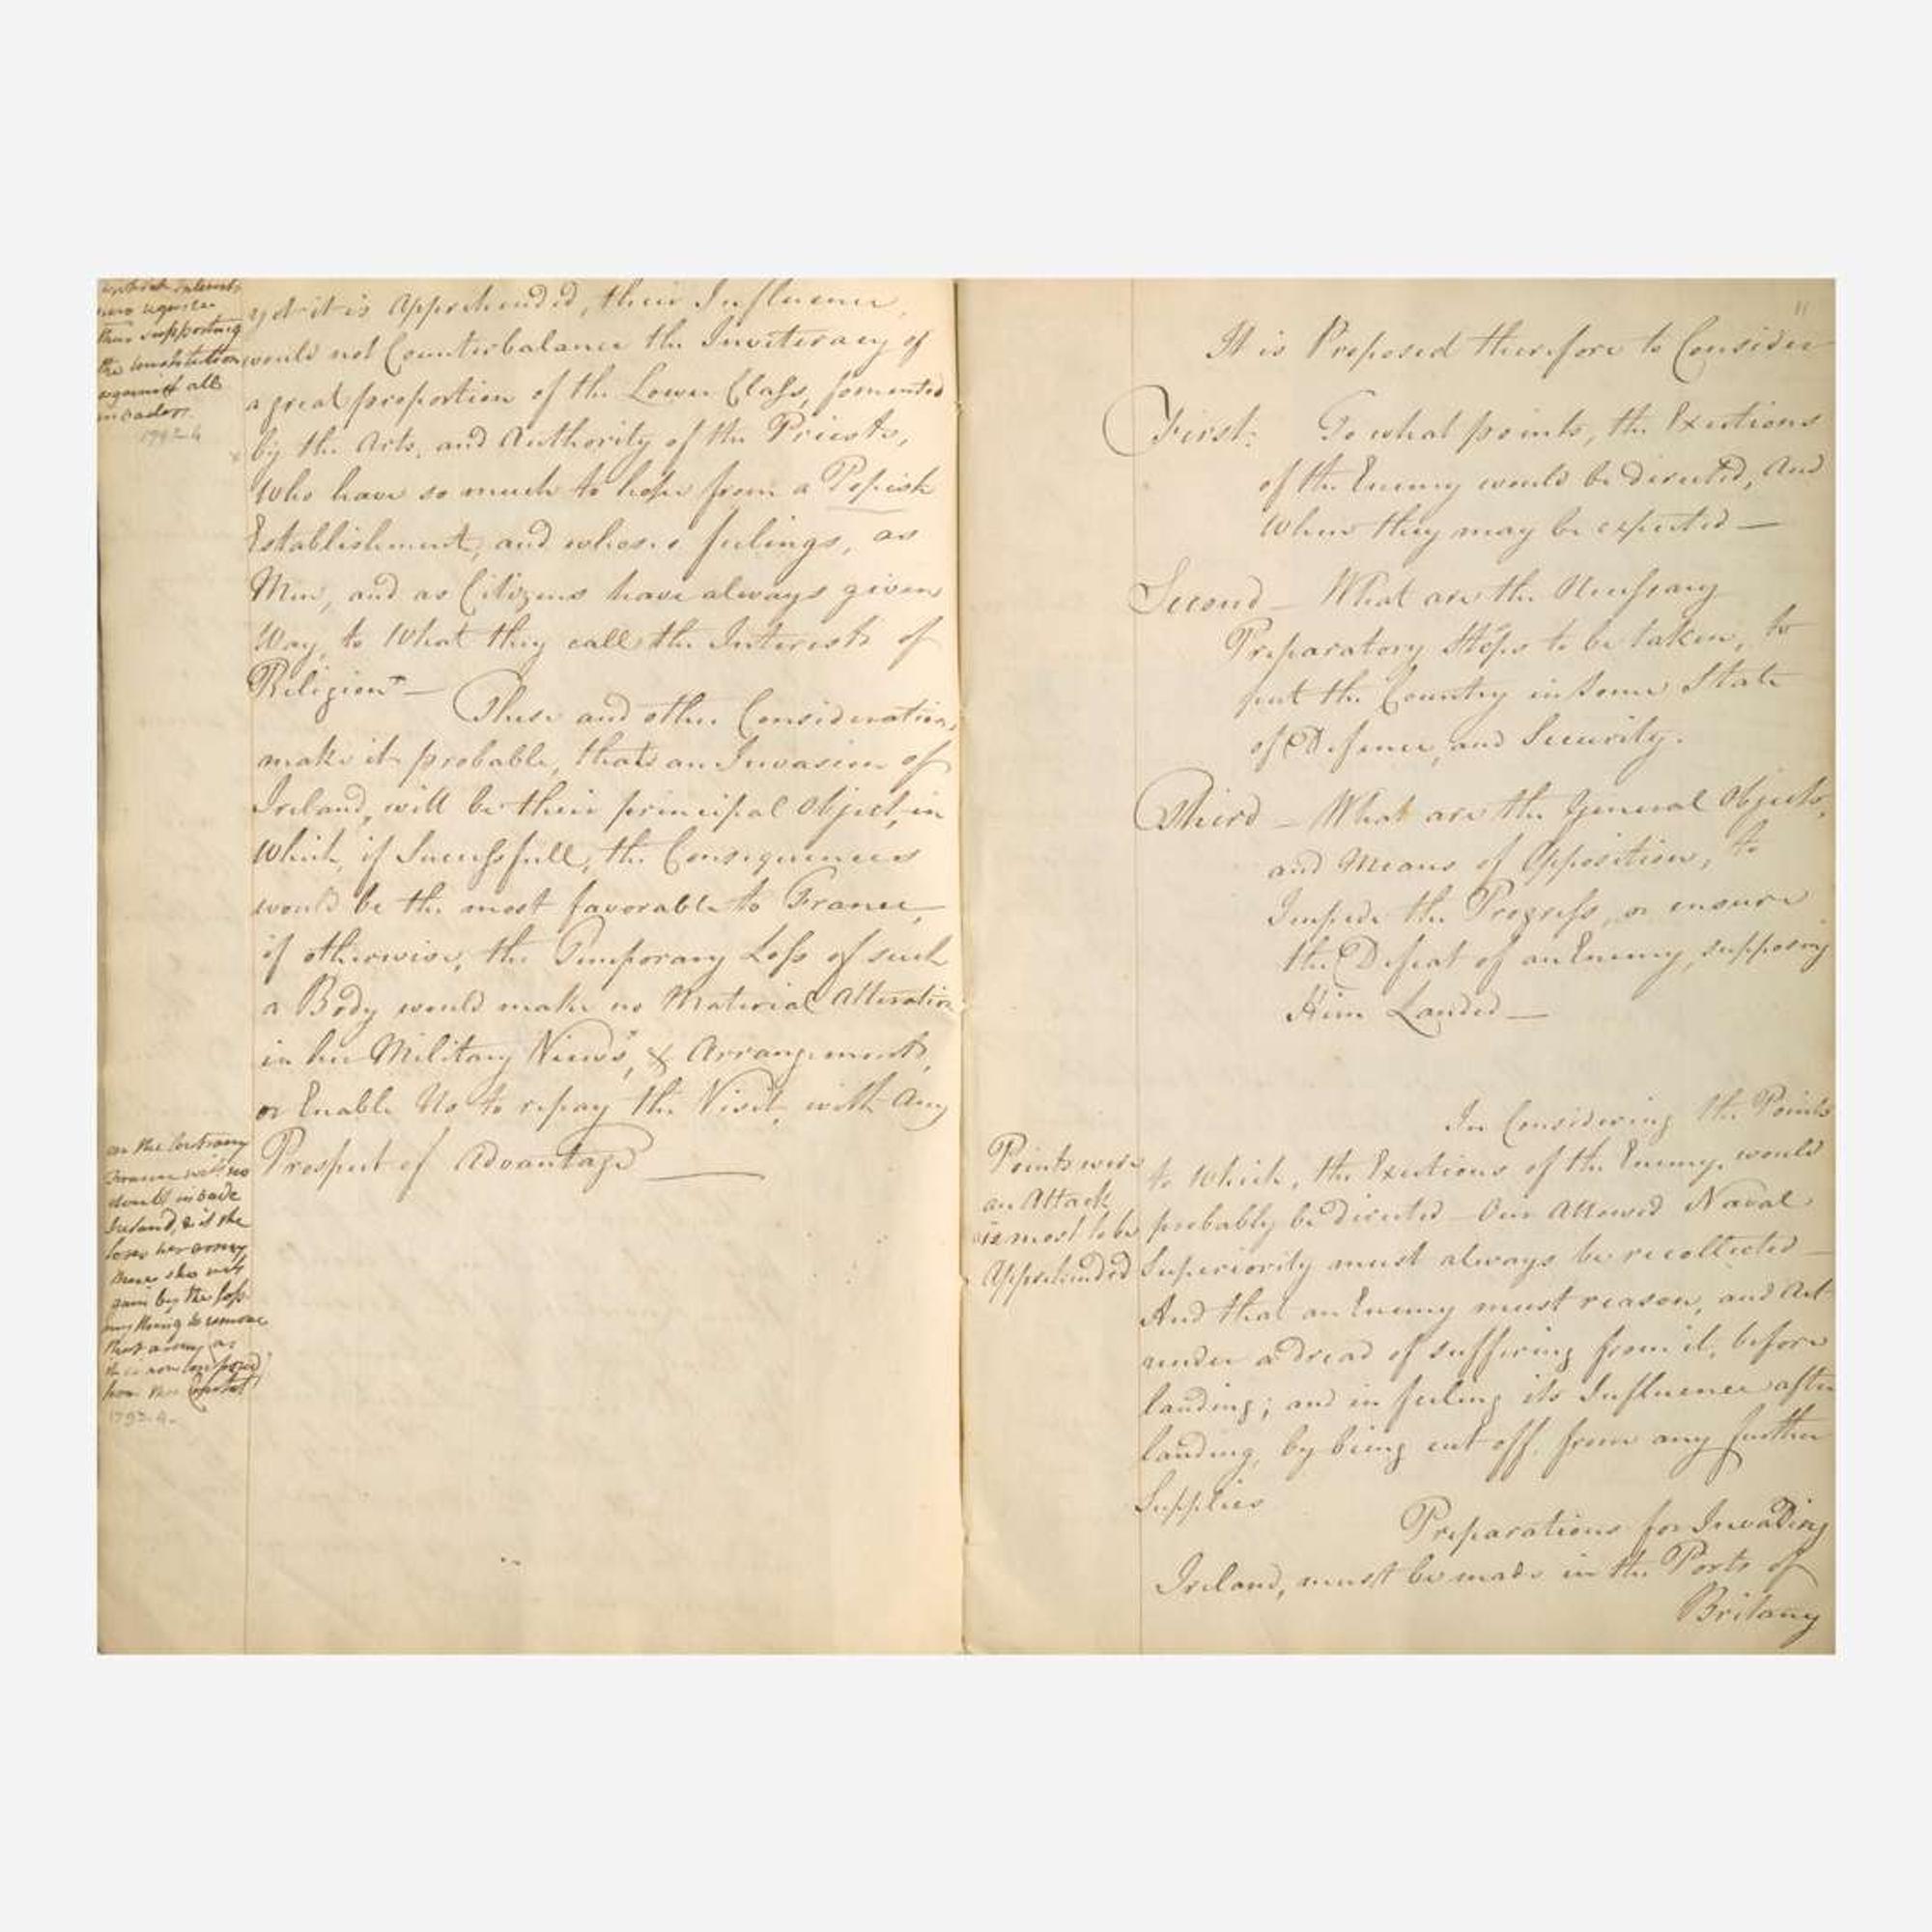 yet it is Apprehended, their Influence,
would not Counterbalance the Inviteracy of
a great proportion of the Lower Class, fomented
by the Arts, and Authority of the Priests,
Who have so much to hope from a Popish
Establishment, and whose feelings, as
Men, and as Citizens have always given
Way, to What they call the Interests of
Religion + — These and other Considerations
make it probable, that an Invasion of
Ireland, will be their principal Object, in
Which, if Successfull, the Consequences
would be the most favorable to France,
if otherwise, the Temporary Loss of such
a Body would make no Material Alteration
in her Military Views, & Arrangements,
or Enable Us to repay the Visit, with Any
Prospect of Advantage —
thus supporting
the constitution
against all
invaders.
1793-4
on the contrary
France will no
doubt invade
Ireland, & if she
loses her army
there she will
gain by the loss
any thing to remove
that army as
it is now composed
from the Capital
1793-4.
11
It is Proposed therefore to Consider
First: To what points, the Exertions
of the Enemy would be directed, And
When they may be expected —
Second — What are the Necessary
Preparatory Steps to be taken, to
put the Country in some State
of Defence, and Security.
Third — What are the General Objects,
and Means of Opposition, to
Impede the Progress, or ensure
the Defeat of an Enemy, supposing
Him Landed —
Points were
an Attack
is most to be
Apprehended
In Considering the Points
to Which, the Exertions of the Enemy would
probably be directed — Our Allowed Naval
Superiority must always be recollected —
And that an Enemy must reason, and Act
under a dread of suffering from it, before
landing; and in feeling its Influence after
landing, by being cut off from any further
Supplies
Preparations for Invading
Ireland, must be made in the Ports of
Britany